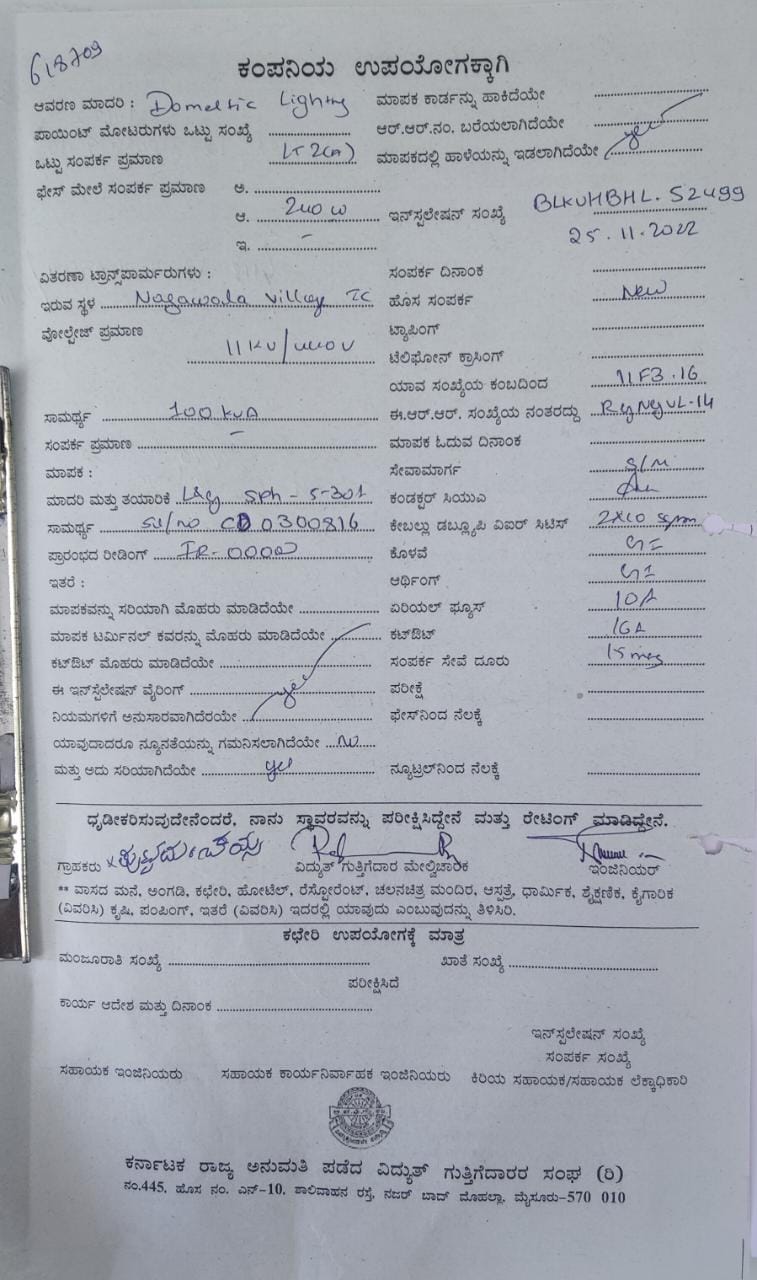 618709
ಕಂಪನಿಯ ಉಪಯೋಗಕ್ಕಾಗಿ
ಆವರಣ ಮಾದರಿ : Domestic Lighting ಮಾಪಕ ಕಾರ್ಡನ್ನು ಹಾಕಿದೆಯೇ
ಪಾಯಿಂಟ್ ಮೋಟರುಗಳು ಒಟ್ಟು ಸಂಖ್ಯೆ ಆರ್.ಆರ್.ನಂ. ಬರೆಯಲಾಗಿದೆಯೇ
ಒಟ್ಟು ಸಂಪರ್ಕ ಪ್ರಮಾಣ LT 2(A) ಮಾಪಕದಲ್ಲಿ ಹಾಳೆಯನ್ನು ಇಡಲಾಗಿದೆಯೇ yes
ಫೇಸ್ ಮೇಲೆ ಸಂಪರ್ಕ ಪ್ರಮಾಣ ಅ.
ಆ. 240 W ಇನ್‌ಸ್ಟಲೇಷನ್ ಸಂಖ್ಯೆ BLKUHBHL.52499
ಇ. – 25.11.2022
ವಿತರಣಾ ಟ್ರಾನ್ಸ್‌ಫಾರ್ಮರುಗಳು : ಸಂಪರ್ಕ ದಿನಾಂಕ
ಇರುವ ಸ್ಥಳ Nagawala Village TC ಹೊಸ ಸಂಪರ್ಕ New
ವೋಲ್ಟೇಜ್ ಪ್ರಮಾಣ 11KV/440V ಟ್ಯಾಪಿಂಗ್
ಟೆಲಿಫೋನ್ ಕ್ರಾಸಿಂಗ್
ಯಾವ ಸಂಖ್ಯೆಯ ಕಂಬದಿಂದ 11F3.16
ಸಾಮರ್ಥ್ಯ 100 KVA ಈ.ಆರ್.ಆರ್. ಸಂಖ್ಯೆಯ ನಂತರದ್ದು
ಸಂಪರ್ಕ ಪ್ರಮಾಣ – ಮಾಪಕ ಓದುವ ದಿನಾಂಕ
ಮಾಪಕ : ಸೇವಾಮಾರ್ಗ
ಮಾದರಿ ಮತ್ತು ತಯಾರಿಕೆ L&G SPh - 5-30A ಕಂಡಕ್ಟರ್ ಸಿಯುಎ
ಸಾಮರ್ಥ್ಯ Sl/no CD0300816 ಕೇಬಲ್ಲು ಡಬ್ಲ್ಯೂಪಿ ವಿಐಆರ್ ಸಿಟಿಸ್ 2X10 sqmm
ಪ್ರಾರಂಭದ ರೀಡಿಂಗ್ IR-00000 ಕೊಳವೆ GI
ಇತರೆ : ಆರ್ಥಿಂಗ್ GI
ಮಾಪಕವನ್ನು ಸರಿಯಾಗಿ ಮೊಹರು ಮಾಡಿದೆಯೇ ಏರಿಯಲ್ ಫ್ಯೂಸ್ 10A
ಮಾಪಕ ಟರ್ಮಿನಲ್ ಕವರನ್ನು ಮೊಹರು ಮಾಡಿದೆಯೇ ಕಟ್‌ಔಟ್ 16A
ಕಟ್‌ಔಟ್ ಮೊಹರು ಮಾಡಿದೆಯೇ ಸಂಪರ್ಕ ಸೇವೆ ದೂರು 15
ಈ ಇನ್‌ಸ್ಟೆಲೇಷನ್ ವೈರಿಂಗ್ yes ಪರೀಕ್ಷೆ
ನಿಯಮಗಳಿಗೆ ಅನುಸಾರವಾಗಿದೆರಯೇ ಫೇಸ್‌ನಿಂದ ನೆಲಕ್ಕೆ
ಯಾವುದಾದರೂ ನ್ಯೂನತೆಯನ್ನು ಗಮನಿಸಲಾಗಿದೆಯೇ
ಮತ್ತು ಅದು ಸರಿಯಾಗಿದೆಯೇ yes ನ್ಯೂಟ್ರಲ್‌ನಿಂದ ನೆಲಕ್ಕೆ
ಧೃಡೀಕರಿಸುವುದೇನೆಂದರೆ, ನಾನು ಸ್ಥಾವರವನ್ನು ಪರೀಕ್ಷಿಸಿದ್ದೇನೆ ಮತ್ತು ರೇಟಿಂಗ್ ಮಾಡಿದ್ದೇನೆ.
ಗ್ರಾಹಕರು ವಿದ್ಯುತ್ ಗುತ್ತಿಗೆದಾರ ಮೇಲ್ವಿಚಾರಕ ಇಂಜಿನಿಯರ್
** ವಾಸದ ಮನೆ, ಅಂಗಡಿ, ಕಛೇರಿ, ಹೋಟೆಲ್, ರೆಸ್ಟೋರೆಂಟ್, ಚಲನಚಿತ್ರ ಮಂದಿರ, ಆಸ್ಪತ್ರೆ, ಧಾರ್ಮಿಕ, ಶೈಕ್ಷಣಿಕ, ಕೈಗಾರಿಕ
(ವಿವರಿಸಿ) ಕೃಷಿ, ಪಂಪಿಂಗ್, ಇತರೆ (ವಿವರಿಸಿ) ಇದರಲ್ಲಿ ಯಾವುದು ಎಂಬುವುದನ್ನು ತಿಳಿಸಿರಿ.
ಕಛೇರಿ ಉಪಯೋಗಕ್ಕೆ ಮಾತ್ರ
ಮಂಜೂರಾತಿ ಸಂಖ್ಯೆ ಖಾತೆ ಸಂಖ್ಯೆ
ಪರೀಕ್ಷಿಸಿದೆ
ಕಾರ್ಯ ಆದೇಶ ಮತ್ತು ದಿನಾಂಕ
ಇನ್‌ಸ್ಟಲೇಷನ್ ಸಂಖ್ಯೆ
ಸಂಪರ್ಕ ಸಂಖ್ಯೆ
ಸಹಾಯಕ ಇಂಜಿನಿಯರು ಸಹಾಯಕ ಕಾರ್ಯನಿರ್ವಾಹಕ ಇಂಜಿನಿಯರು ಕಿರಿಯ ಸಹಾಯಕ/ಸಹಾಯಕ ಲೆಕ್ಕಾಧಿಕಾರಿ
ಕರ್ನಾಟಕ ರಾಜ್ಯ ಅನುಮತಿ ಪಡೆದ ವಿದ್ಯುತ್ ಗುತ್ತಿಗೆದಾರರ ಸಂಘ (ರಿ)
ನಂ.445, ಹೊಸ ನಂ. ಎನ್-10, ಶಾಲಿವಾಹನ ರಸ್ತೆ, ನಜರ್ ಬಾದ್ ಮೊಹಲ್ಲಾ, ಮೈಸೂರು-570 010